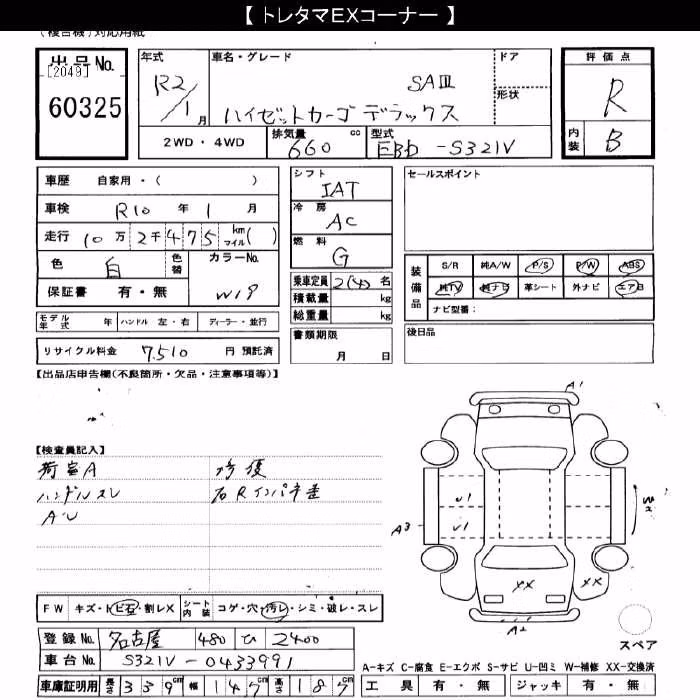 【 トレタマEXコーナー 】
(複合機)対応用紙
出品No.
[2049]
60325
年式
R2/1月
車名・グレード
SAⅢ
ハイゼットカーゴ デラックス
ドア
形状
評価点
R
内装
B
2WD・4WD
排気量
660 cc
型式
EBD-S321V
車歴 自家用・( )
車検 R10 年 1 月
走行 10万2千475 km マイル( )
色 白 色替
カラーNo.
W19
保証書 有・無
シフト
IAT
冷房
AC
燃料
G
乗車定員 2(4) 名
積載量 kg
総重量 kg
セールスポイント
装備品
S/R 純A/W P/S P/W ABS
純TV 純ナビ 革シート 外ナビ エアB
ナビ型番:
モデル年式 年 ハンドル 左・右 ディーラー・並行
書類期限
月 日
後日品
リサイクル料金 7,510 円 預託済
【出品店申告欄(不良箇所・欠品・注意事項等)】
【検査員記入】
荷室A 修復
ハンドルスレ 右Rインパネ歪
AU
A1
U1
U1
A3
XX
XX
A2
FW キズ・ト ビ石・割レX シート内装 コゲ・穴・汚レ・シミ・破レ・スレ
スペア
登録No. 名古屋 480 ひ 2400
車台No. S321V-0433991
A-キズ C-腐食 E-エクボ S-サビ U-凹ミ W-補修 XX-交換済
車庫証明用 長さ 339cm 幅 147cm 高さ 187cm
工具 有・無 ジャッキ 有・無